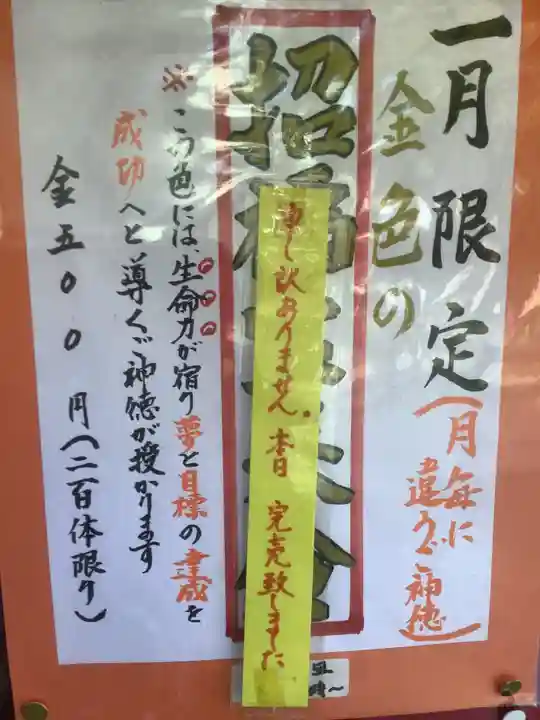 一月限定(月毎に違うご神徳)
金色の
招福
申し訳ありません。本日 完売致しました
※この色には、生命力が宿り夢と目標の達成を
成功へと導くご神徳が授かります
金五〇〇円(二百体限り)